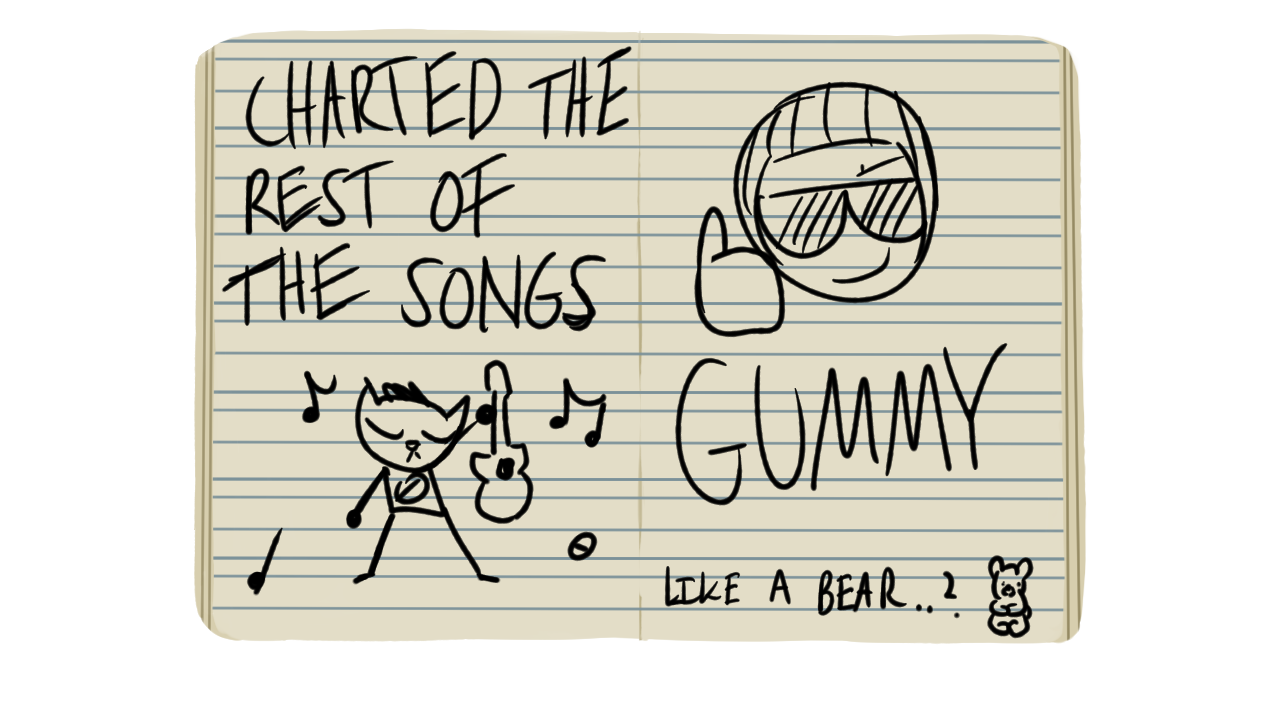 CHARTED THE
REST OF
THE SONGS
GUMMY
LIKE A BEAR..?